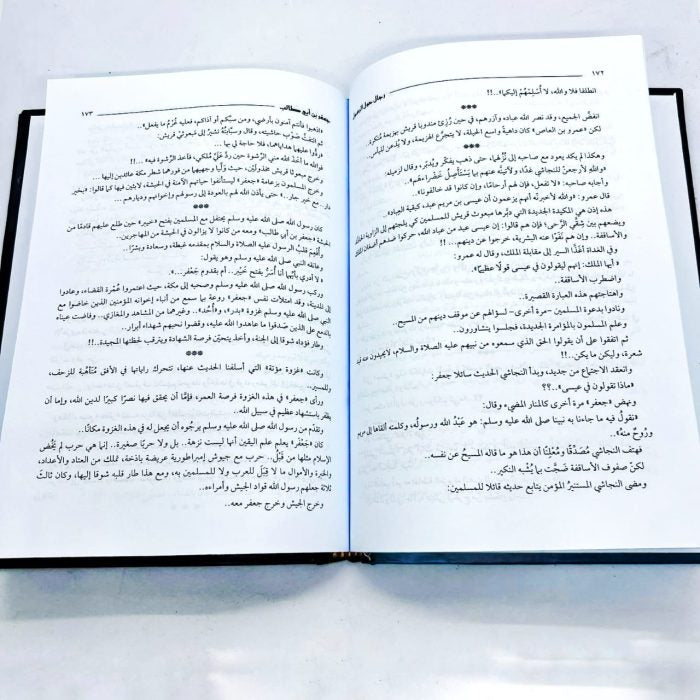 ١٧٢
رجال حول الرسول
انطلقا فلا والله، لا أُسلِمُهُمْ إليكما»..!!
***
انفضَّ الجميع، وقد نصر الله عباده وآزرهم، في حين رُزِئ مندوبا قريش بهزيمة مُنكَرة.
لكن «عمرو بن العاص» كان داهيةً واسع الحِيلة، لا يتجرَّع الهزيمة، ولا يُذعن لليأس..
وهكذا لم يكد يعود مع صاحبه إلى نُزُلهما، حتى ذهب يفكّر ويُدبّر، وقال لزميله:
«والله لأرجعنَّ للنجاشي غدًا، ولآتينَّه عنهم بما يَسْتأصِل خَضْراءهم»..
وأجابه صاحبه: «لا تفعل، فإن لهم أرحامًا، وإن كانوا قد خالفونا»..
قال عمرو: «والله لأخبرنَّه أنهم يزعمون أن عيسى بن مريم عبد، كبقية العباد»..
هذه إذن هي المكيدة الجديدة التي دبَّرها مبعوث قريش للمسلمين كي يلجئهم إلى الزاوية
ويضعهم بين شِقَّي الرَّحى؛ فإن هم قالوا: إن عيسى عبد من عباد الله، حركوا ضدهم أضغان
والأساقفة.. وإن هم نَفَوْا عنه البشرية، خرجوا عن دينهم.. !!
***
وفي الغداة أغذَّا السير إلى مقابلة الملك، وقال له عمرو:
«أيها الملك: إنهم ليقولون في عيسى قولًا عظيمًا».
واضطرب الأساقفة..
واهتاجتهم هذه العبارة القصيرة..
ونادوا بدعوة المسلمين –مرة أخرى– لسؤالهم عن موقف دينهم من المسيح..
وعلم المسلمون بالمؤامرة الجديدة، فجلسوا يتشاورون..
ثم اتفقوا على أن يقولوا الحق الذي سمعوه من نبيهم عليه الصلاة والسلام، لا يحيدون عنه قيد
شعرة، وليكن ما يكن..!!
وانعقد الاجتماع من جديد، وبدأ النجاشي الحديث سائلا جعفر:
«ماذا تقولون في عيسى»..؟؟
ونهض «جعفر» مرة أخرى كالمنار المضيء وقال:
«نقولُ فيه ما جاءنا به نبينا صلى الله عليه وسلم: هو عَبْدُ الله ورسولُه، وكلمته ألقاها إلى مريم
ورُوحٌ منه»..
فهتف النجاشي مُصَدِّقًا ومُعْلِنًا أن هذا هو ما قاله المسيحُ عن نفسه..
لكنّ صفوف الأساقفة ضَجَّت بما يُشْبه النكير..
ومضى النجاشي المستنيرُ المؤمن يتابع حديثه قائلا للمسلمين:
١٧٣
جعفر بن أبي طالب
«اذهبوا فأنتم آمنون بأرضي، ومن سبَّكم أو آذاكم، فعليه غُرْمُ ما يفعل»..
ثم التفتَ صَوْب حاشيته، وقال وسبَّابتُه تُشيرُ إلى مبعوثَيْ قريش:
«رُدُّوا عليهما هداياهما، فلا حاجة لي بها...
فوالله ما أخذ الله مني الرِّشوة حين ردَّ عليَّ مُلْكي، فآخذ الرِّشوة فيه»...!!
وخرج مبعوثا قريش مخذولَيْن، حيث ولَّيا وجههما من فورهما شطر مكة عائدين إليها..
وخرج المسلمون بزعامة «جعفر» ليستأنفوا حياتهم الآمنة في الحبشة، لابثين فيها كما قالوا: «بخير
دار.. مع خير جار..» حتى يأذن الله لهم بالعودة إلى رسولهم وإخوانهم وديارهم...
***
كان رسول الله صلى الله عليه وسلم يحتفل مع المسلمين بفتح «خيبر» حين طلع عليهم قادمًا من
الحبشة «جعفر بن أبي طالب» ومعه من كانوا لا يزالون في الحبشة من المهاجرين..
وأُفْعِمَ قلبُ الرسول عليه الصلاة والسلام بمقدمه غبطة، وسعادة وبِشْرًا..
وعانقه النبي صلى الله عليه وسلم وهو يقول:
«لا أدري بأيّهما أنا أُسَرُّ بفتح خَيْبَر.. أم بقدوم جَعْفر..».
وركب رسول الله صلى الله عليه وسلم وصحبه إلى مكة، حيث اعتمروا عُمْرة القضاء، وعادوا
إلى المدينة، وقد امتلأت نفس «جعفر» روعة بما سمع من أنباء إخوانه المؤمنين الذين خاضوا مع
النبي صلى الله عليه وسلم غزوة «بدر»، و«أُحُد».. وغيرهما من المشاهد والمغازي.. وفاضت عيناه
بالدمع على الذين صَدقوا ما عاهدوا الله عليه، وقضوا نحبهم شهداء أبرار..
وطار فؤاده شوقا إلى الجنة، وأخذ يتحيّن فرصة الشهادة ويترقب لحظتها المجيدة..!!
***
وكانت «غزوة مؤتة» التي أسلفنا الحديث عنها، تتحرك راياتها في الأفق مُتأهِّبة للزحف،
وللمسير..
ورأى «جعفر» في هذه الغزوة فرصة العمر، فإمَّا أن يحقق فيها نصرًا كبيرًا لدين الله، وإما أن
يظفر باستشهاد عظيم في سبيل الله..
وتقدَّم من رسول الله صلى الله عليه وسلم يرجُوه أن يجعل له في هذه الغزوة مكانًا..
كان «جَعْفَر» يعلم علم اليقين أنها ليست نزهة.. بل ولا حربًا صغيرة.. إنما هي حرب لم يَخُض
الإسلام مثلها من قبلُ.. حرب مع جيوش إمبراطورية عريضة باذخة، تملك من العتاد والأعداد،
والخبرة والأموال ما لا قِبَلَ للعرب ولا للمسلمين به، ومع هذا طار قلبه شوقا إليها، وكان ثالثَ
ثلاثة جعلهم رسول الله قواد الجيش وأمراءه..
وخرج الجيش وخرج جعفر معه..